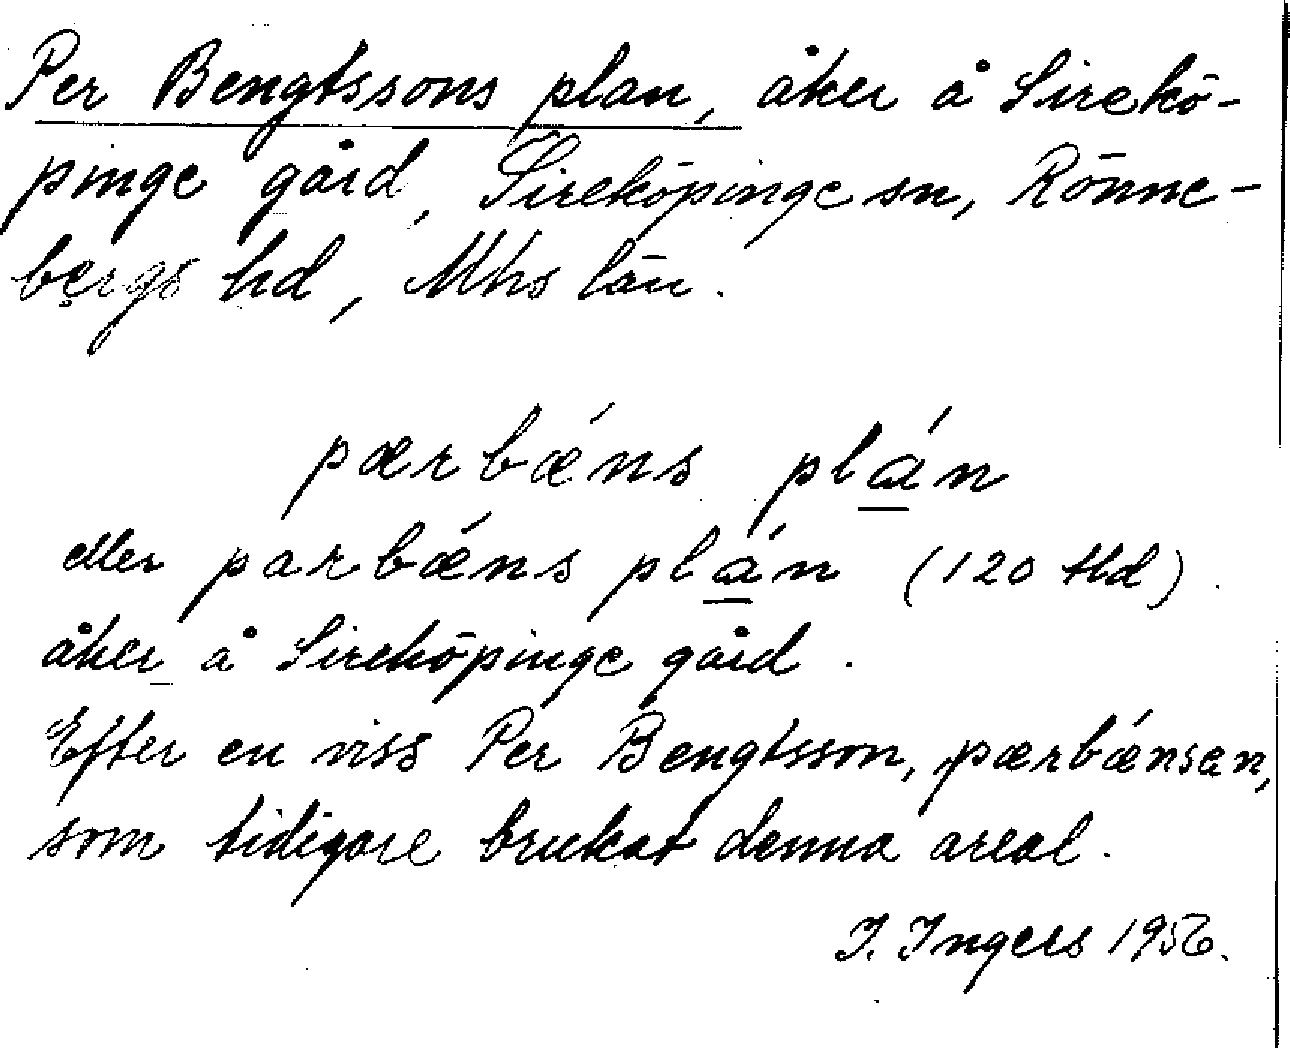 Per Bengtssons plan, åker å Sirekö-
pinge gård, Sireköpinge sn, Rönne-
bergs hd, Mhs län.
pærbǽns plán
eller parbǽns plán (120 tld).
åker å Sireköpinge gård.
Efter en viss Per Bengtsson, pærbǽnsan,
som tidigare brukat denna areal.
I. Ingers 1956.